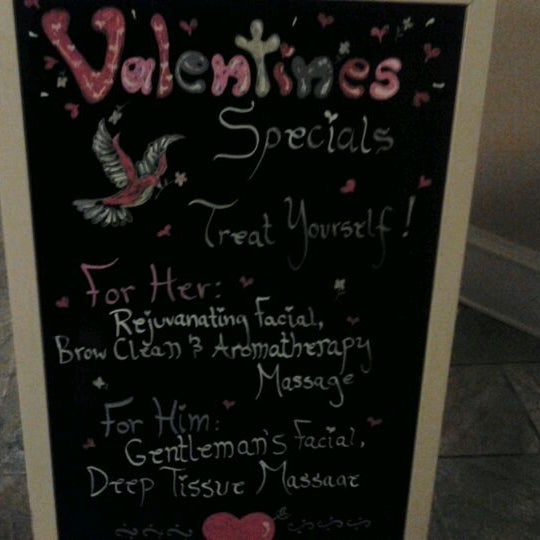 Valentines
Specials
Treat Yourself!
For Her:
Rejuvanating Facial,
Brow Clean & Aromatherapy
Massage
For Him:
Gentleman's Facial,
Deep Tissue Massage